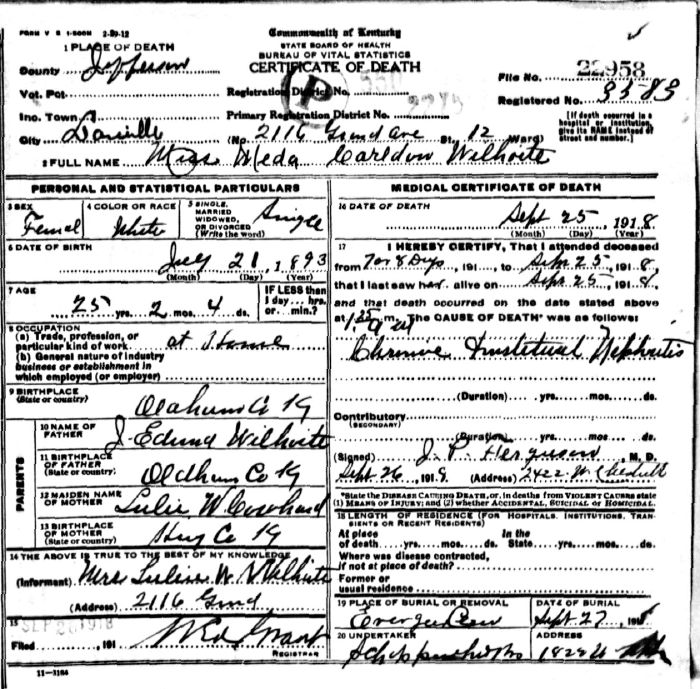 FORM V S 1-500M 2-29-12
Commonwealth of Kentucky
STATE BOARD OF HEALTH
BUREAU OF VITAL STATISTICS
CERTIFICATE OF DEATH
1 PLACE OF DEATH
County Jefferson
File No. 22958
Vot. Pct. Registration District No.
P
Registered No.
Inc. Town Primary Registration District No.
[If death occurred in a hospital or institution, give its NAME instead of street and number.]
City (No. 2116 Grand Ave St., 12 Ward)
2 FULL NAME Miss Wilhoite
PERSONAL AND STATISTICAL PARTICULARS
3 SEX
Femal
4 COLOR OR RACE
White
5 SINGLE, MARRIED, WIDOWED, OR DIVORCED (Write the word)
Single
6 DATE OF BIRTH
July 21, 1893
(Month) (Day) (Year)
7 AGE
25 yrs. 2 mos. 4 ds.
IF LESS than 1 day... hrs. or min.?
8 OCCUPATION
(a) Trade, profession, or particular kind of work at Home
(b) General nature of industry business or establishment in which employed (or employer)
9 BIRTHPLACE
(State or country) Co Ky
PARENTS
10 NAME OF FATHER
J. Wilhoite
11 BIRTHPLACE OF FATHER
(State or country) Oldham Co Ky
12 MAIDEN NAME OF MOTHER
W.
13 BIRTHPLACE OF MOTHER
(State or country) Co Ky
14 THE ABOVE IS TRUE TO THE BEST OF MY KNOWLEDGE
(Informant) Mrs W. Wilhoite
(Address) 2116
15
SEP 1918
Filed 191 Grant
REGISTRAR
11-1184
MEDICAL CERTIFICATE OF DEATH
16 DATE OF DEATH
Sept 25, 1918
(Month) (Day) (Year)
17 I HEREBY CERTIFY, That I attended deceased
from 7 or 8 Dys, 191 to Sept 25, 1918,
that I last saw her alive on Sept 25, 1918,
and that death occurred on the date stated above
at m. The CAUSE OF DEATH* was as follows:
Nephritis
(Duration) yrs. mos. ds.
Contributory
(SECONDARY)
(Duration) yrs. mos. ds.
(Signed) J. Ferguson, M. D.
Sept 26, 191 (Address) 2422 W.
*State the DISEASE CAUSING DEATH, or, in deaths from VIOLENT CAUSES state
(1) MEANS OF INJURY; and (2) whether ACCIDENTAL, SUICIDAL or HOMICIDAL.
18 LENGTH OF RESIDENCE (FOR HOSPITALS, INSTITUTIONS, TRANSIENTS OR RECENT RESIDENTS)
At place of death yrs. mos. ds. In the State yrs. mos. ds.
Where was disease contracted, if not at place of death?
Former or usual residence
19 PLACE OF BURIAL OR REMOVAL
DATE OF BURIAL
Sept 27, 191
20 UNDERTAKER
ADDRESS